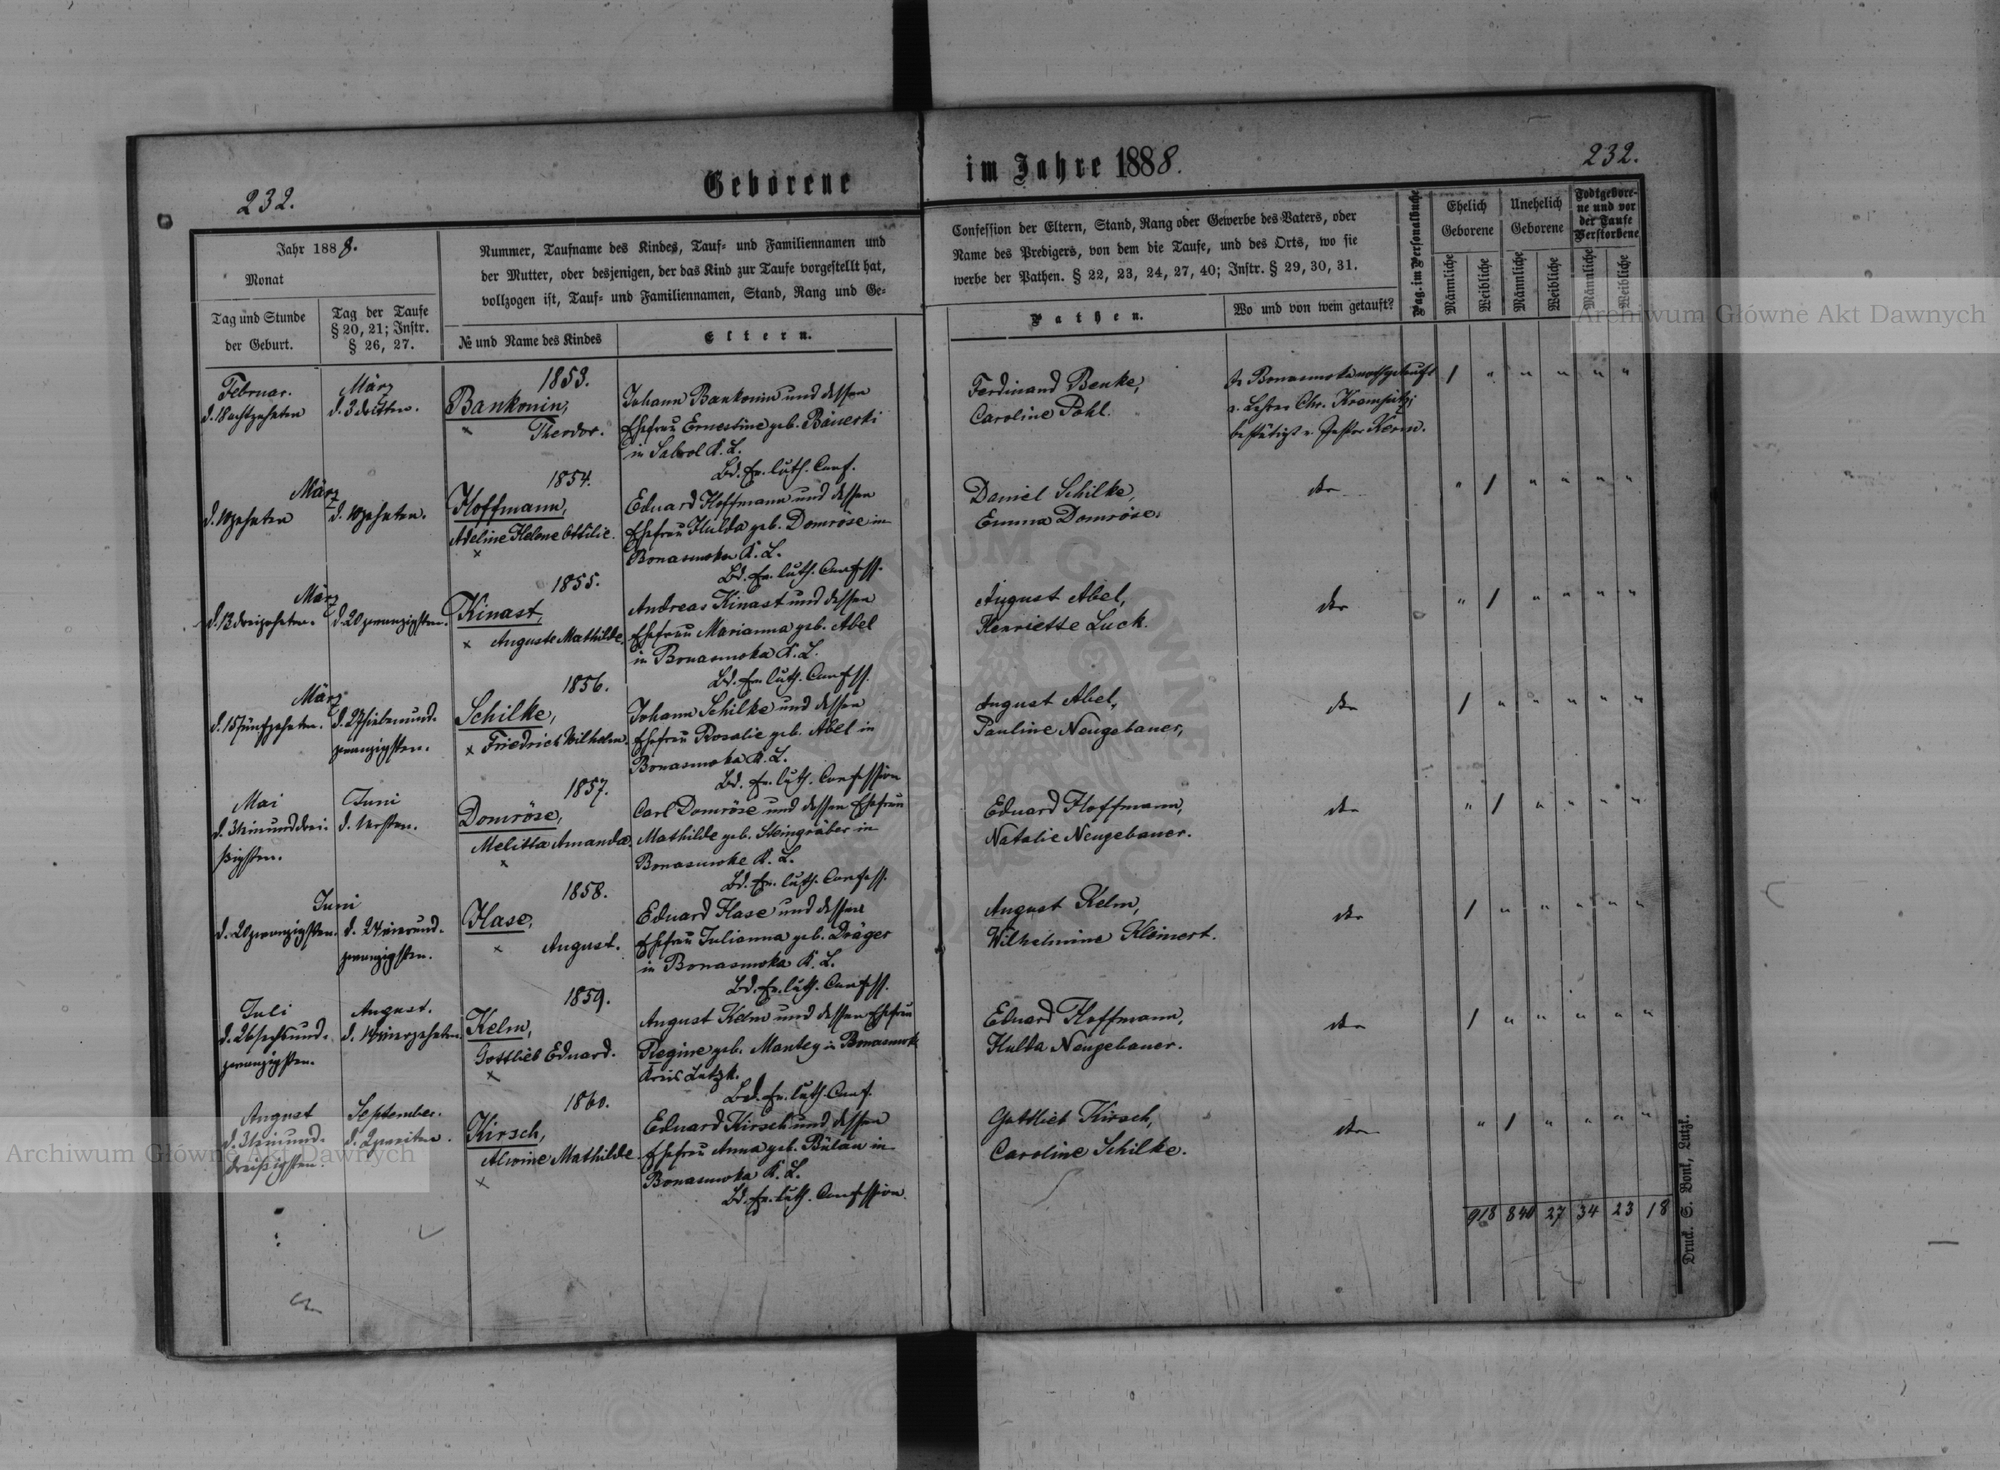 232.
Geborene im Jahre 1888.
232.
Jahr 1888.
Monat
Tag und Stunde
der Geburt.
Tag der Taufe
§ 20, 21; Instr.
§ 26, 27.
Nummer, Taufname des Kindes, Tauf- und Familiennamen und
der Mutter, oder desjenigen, der das Kind zur Taufe vorgestellt hat,
vollzogen ist, Tauf- und Familiennamen, Stand, Rang und Ge-
№ und Name des Kindes
Eltern.
Confession der Eltern, Stand, Rang oder Gewerbe des Vaters, oder
Name des Predigers, von dem die Taufe, und des Orts, wo sie
werbe der Pathen. § 22, 23, 24, 27, 40; Instr. § 29, 30, 31.
Pathen.
Wo und von wem getauft?
Pag. im Personalbuche
Ehelich
Geborene
Unehelich
Geborene
Todtgebore-
ne und vor
der Taufe
Verstorbene
Männliche
Weibliche
Männliche
Weibliche
Männliche
Weibliche
Februar.
d. 18 achtzehnten
März
d. 3 dritten.
1853.
Bankonin,
× Theodor.
Johann Bankonin und dessen
Ehefrau Ernestine geb.
in K. L.
Bd. Ev. luth. Conf.
Ferdinand Benke,
Caroline Pohl.
In nothgetauft
v. Lehrer Chr.
bestätigt v. Pastor Kern.
1 " " " " "
März
d. 10 zehnten
d. 10 zehnten.
1854.
Hoffmann,
Adeline Helene Ottilie.
×
Eduard Hoffmann und dessen
Ehefrau Hulda geb. Domröse in
Bonasuwka K. L.
Bd. Ev. luth. Confess.
Daniel Schilke,
Emma Domröse.
" 1 " " " "
März
d. 13 dreizehnten.
d. 20 zwanzigsten.
1855.
Kinast,
× Auguste Mathilde.
Andreas Kinast und dessen
Ehefrau Marianna geb. Abel
in Bonasuwka K. L.
Bd. Ev. luth. Confess.
August Abel,
Henriette Luck.
" 1 " " " "
März
d. 15 fünfzehnten.
d. 27 siebenund-
zwanzigsten.
1856.
Schilke,
× Friedrich Wilhelm.
Johann Schilke und dessen
Ehefrau Rosalie geb. Abel in
Bonasuwka K. L.
Bd. Ev. luth. Confession
August Abel,
Pauline Neugebauer,
1 " " " " "
Mai
d. 31 einunddrei-
ßigsten.
Juni
d. 1 ersten.
1857.
Domröse,
Melitta Amanda.
×
Carl Domröse und dessen Ehefrau
Mathilde geb. Steingräber in
Bonasuwka K. L.
Bd. Ev. luth. Confess.
Eduard Hoffmann,
Natalie Neugebauer.
" 1 " " " "
Juni
d. 20 zwanzigsten.
d. 24 vierund-
zwanzigsten.
1858.
Hase,
× August.
Eduard Hase und dessen
Ehefrau Julianna geb. Dräger
in Bonasuwka K. L.
Bd. Ev. luth. Confess.
August Kelm,
Wilhelmine Kleinert.
1 " " " " "
Juli
d. 26 sechsund-
zwanzigsten.
August.
d. 14 vierzehnten.
1859.
Kelm,
Gottlieb Eduard.
×
August Kelm und dessen Ehefrau
Regine geb. Mantey in
Kreis Lutzk.
Bd. Ev. luth. Conf.
Eduard Hoffmann,
Hulda Neugebauer.
1 " " " " "
August
d. 31 einund-
dreißigsten.
September.
d. 2 zweiten.
1860.
Kirsch,
Alwine Mathilde.
×
Eduard Kirsch und dessen
Ehefrau Anna geb. Bülau in
Bonasuwka K. L.
Bd. Ev. luth. Confession.
Gottlieb Kirsch,
Caroline Schilke.
" 1 " " " "
918 840 27 34 23 18
Druck. S. Bonk, Lutzk.
Archiwum Główne Akt Dawnych
Archiwum Główne Akt Dawnych